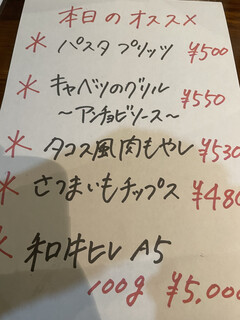 本日のオススメ
* パスタプリッツ ¥500
* キャベツのグリル
~アンチョビソース~ ¥550
* タコス風肉もやし ¥530
* さつまいもチップス ¥480
* 和牛ヒレ A5
100g ¥5,000